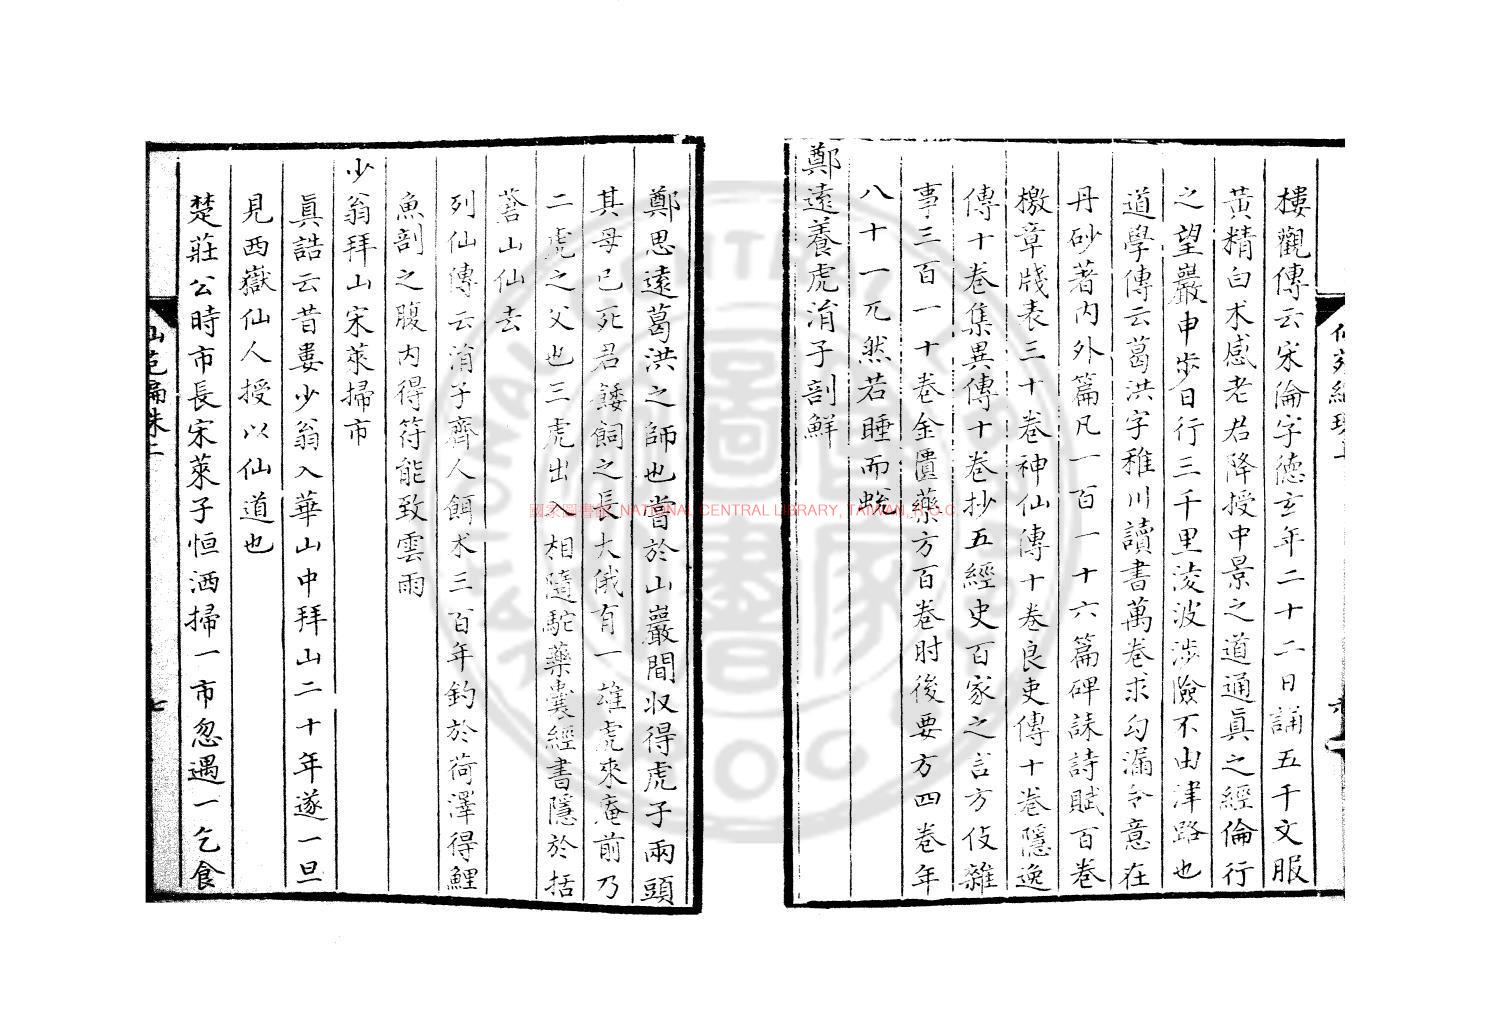 樓觀傳云宋倫字德玄年二十二日誦五千文服
黃精白朮感老君降授中景之道通眞之經倫行
之望巖申步日行三千里淩波涉險不由津路也
道學傳云葛洪字稚川讀書萬卷求勾漏令意在
丹砂著內外篇凡一百一十六篇碑誄詩賦百卷
檄章牋表三十卷神仙傳十卷良吏傳十卷隱逸
傳十卷集異傳十卷抄五經史百家之言方伎雜
事三百一十卷金匱藥方百卷肘後要方四卷年
八十一兀然若睡而蛻
鄭遠養虎涓子剖鮮
鄭思遠葛洪之師也嘗於山巖間収得虎子兩頭
其母已死君餧飼之長大俄有一雄虎來庵前乃
二虎之父也三虎出入相隨駝藥囊經書隱於括
蒼山仙去
列仙傳云涓子齊人餌朮三百年釣於荷澤得鯉
魚剖之腹內得符能致雲雨
少翁拜山宋萊掃市
眞誥云昔婁少翁入華山中拜山二十年遂一旦
見西嶽仙人授以仙道也
楚莊公時市長宋萊子恒洒掃一市忽遇一乞食
七
國家圖書館 NATIONAL CENTRAL LIBRARY, TAIWAN, R.O.C